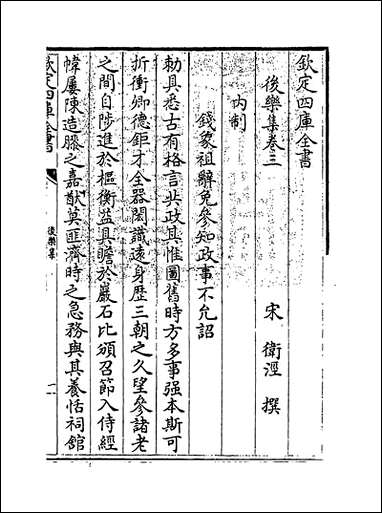 欽定四庫全書
後樂集卷三
宋 衛涇 撰
内制
錢象祖辭免參知政事不允詔
勅具悉古有格言共政其惟圖舊時方多事强本斯可
折衝卿德鉅才全器閎識遠身歴三朝之久望參諸老
之間自陟進於樞衡益具瞻於巖石比頒召節入侍經
幃屢陳造膝之嘉猷莫匪濟時之急務與其養恬祠館
欽定四庫全書
後樂集
一